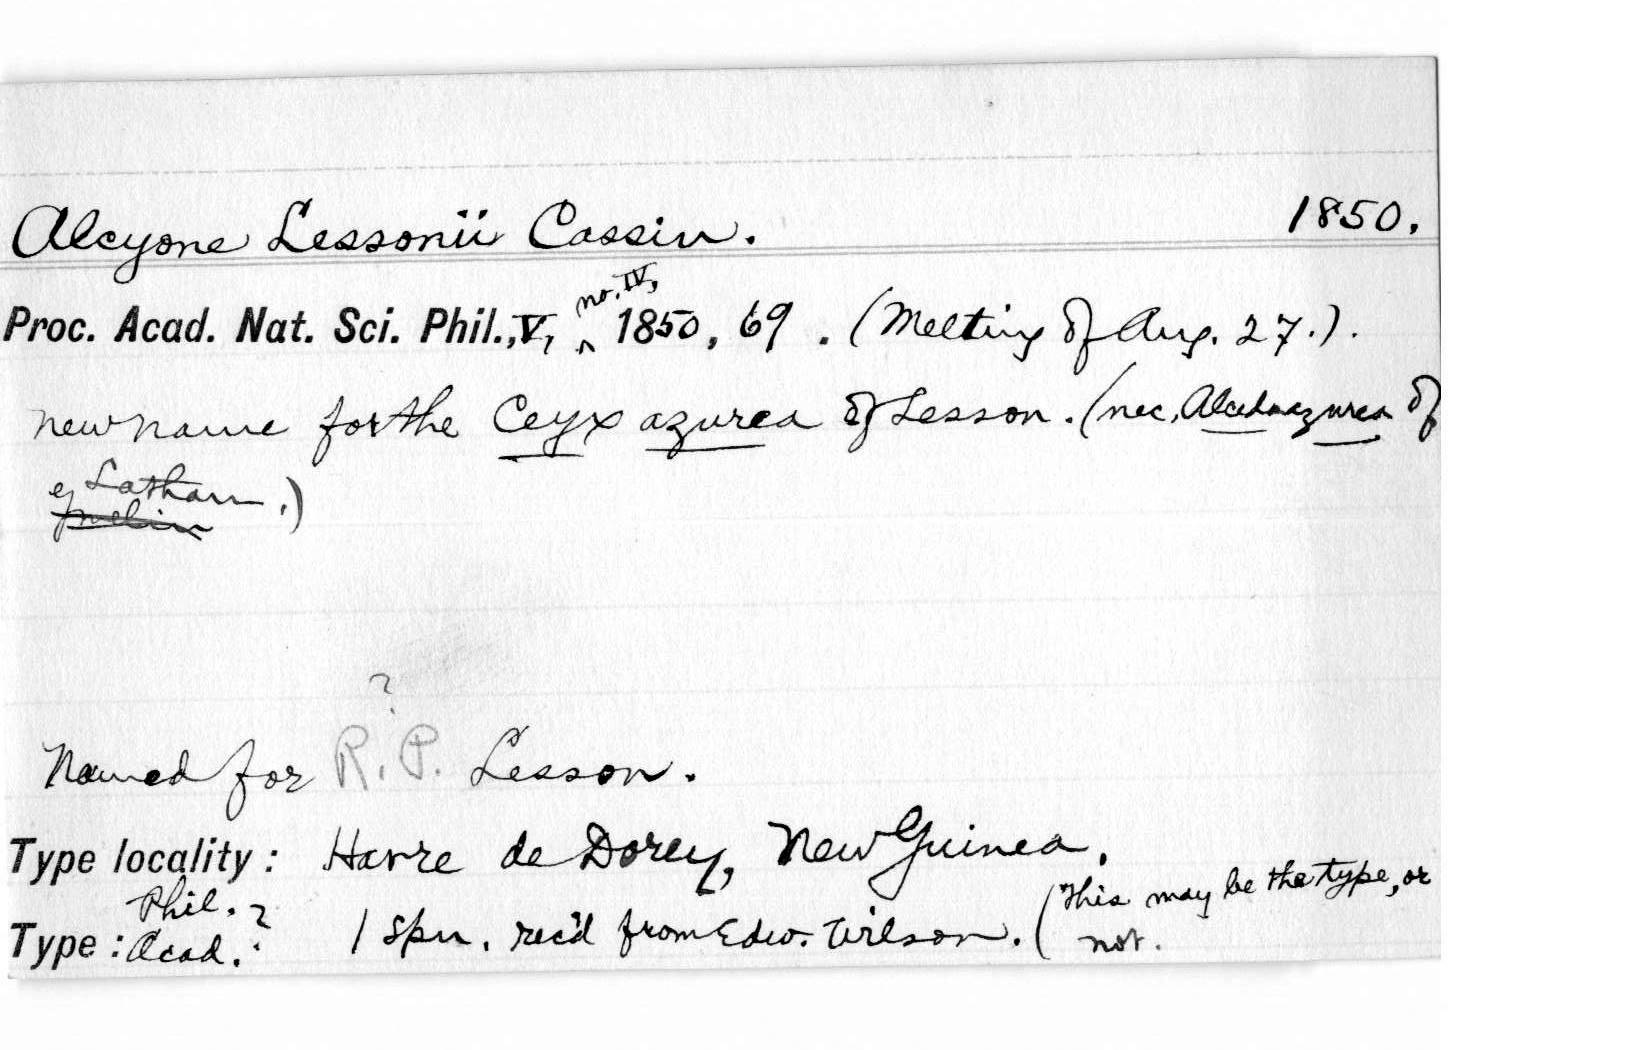 Alcyone Lessonii Cassin. 1850.
Proc. Acad. Nat. Sci. Phil., V, no. IV, 1850, 69. (Meeting of Aug. 27.).
new name for the Ceyx azurea of Lesson. (nec. Alcedo azurea of
Latham.)
?
Named for R. P. Lesson.
Type locality: Havre de Dorey, New Guinea.
Type: Phil. Acad. ? 1 Spm. rec'd from Edw. Wilson. (This may be the type, or
not.